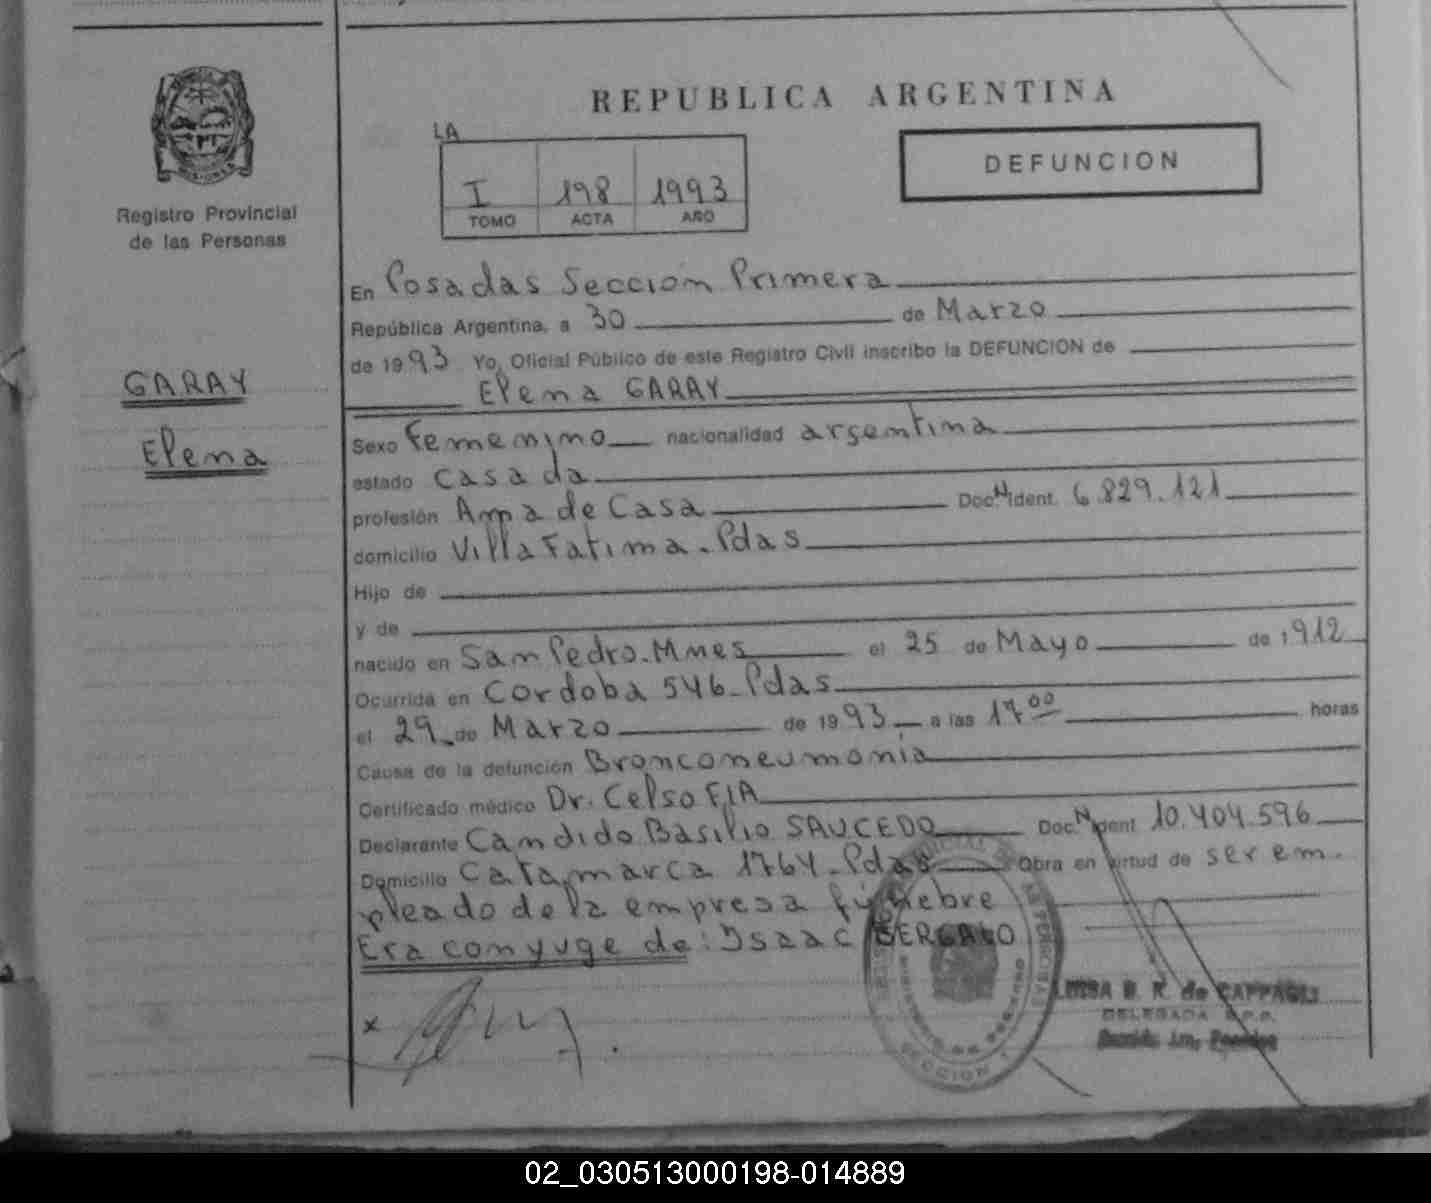 REPUBLICA ARGENTINA
LA
DEFUNCION
I 198 1993
TOMO ACTA AÑO
MISIONES
Registro Provincial
de las Personas
GARAY
Elena
En Posadas Sección Primera
República Argentina, a 30 de Marzo
de 1993 Yo, Oficial Público de este Registro Civil inscribo la DEFUNCION de
Elena GARAY
Sexo Femenino nacionalidad argentina
estado Casada
profesión Ama de Casa Doc. N Ident. 6.829.121
domicilio Villa Fatima - Pdas
Hijo de
y de
nacido en San Pedro - Mnes el 25 de Mayo de 1912
Ocurrida en Cordoba 546 - Pdas
el 29 de Marzo de 1993 a las 17 00 horas
Causa de la defunción Bronconeumonia
Certificado médico Dr. Celso FIA
Declarante Candido Basilio SAUCEDO Doc. N Ident 10.404.596
Domicilio Catamarca 1764 - Pdas Obra en virtud de ser em-
pleado de la empresa fúnebre
Era conyuge de: Isaac
x
LUISA B. R. de CAPPAGLI
DELEGADA R.P.P.
SECCION 1
02_030513000198-014889